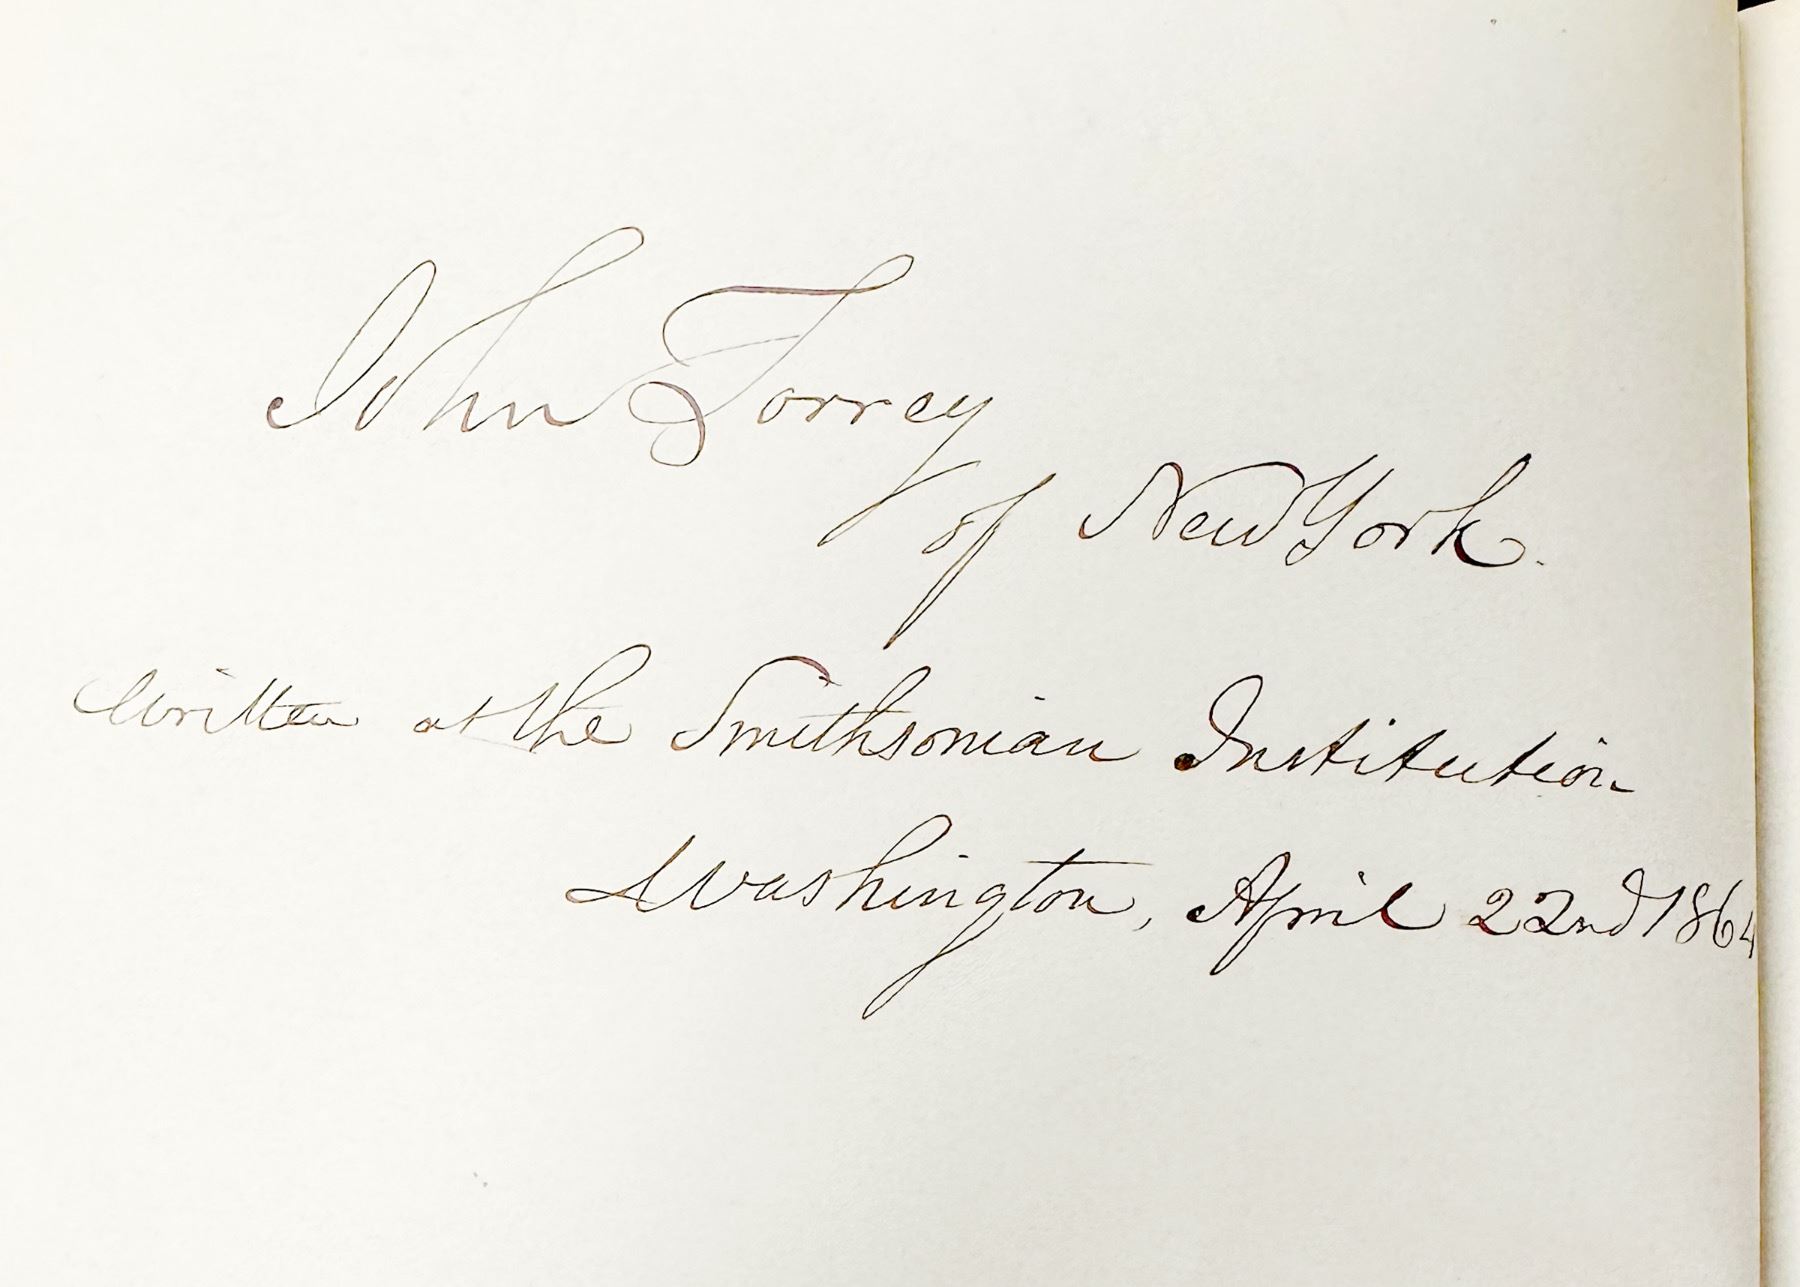 John Torrey
of New York.
Written at the Smithsonian Institution
Washington, April 22nd 1864